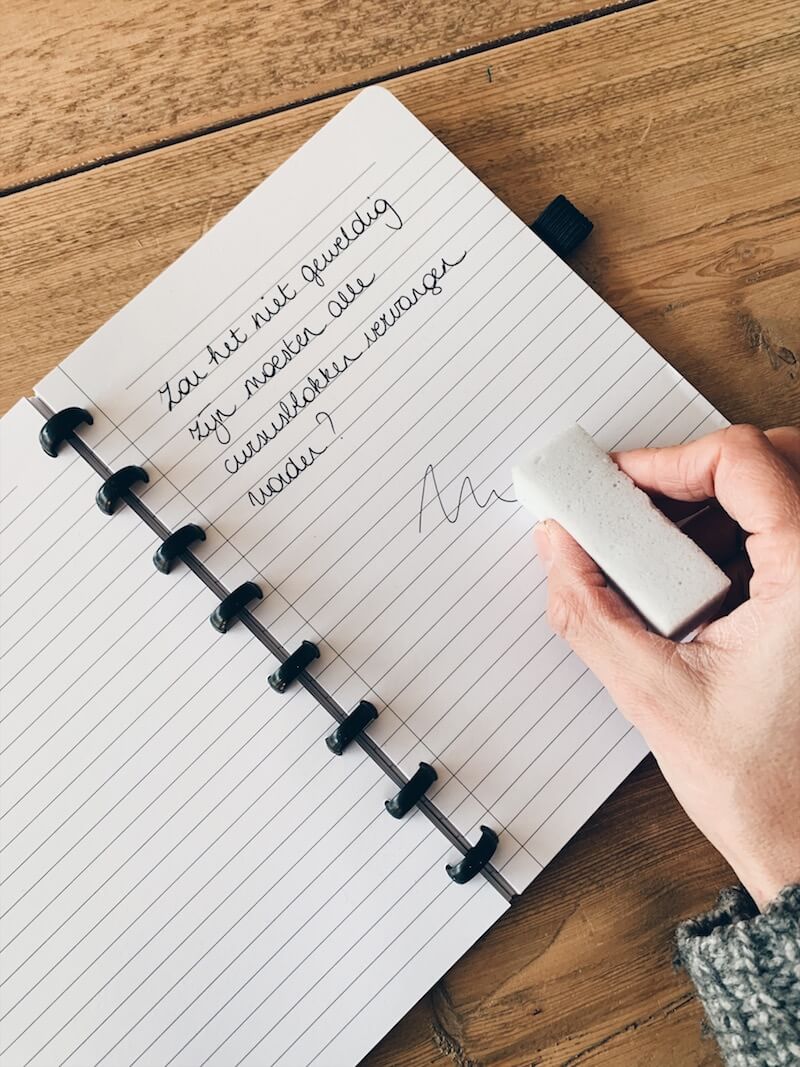 Zou het niet geweldig
zijn moesten alle
cursusblokken vervangen
worden?